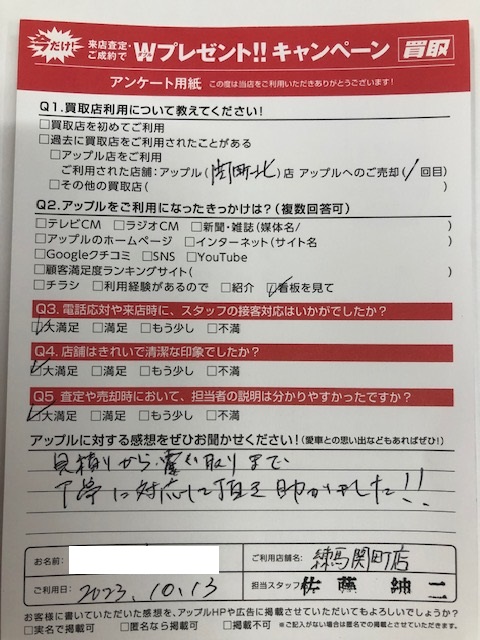 だけ! 来店査定・ご成約で Wプレゼント!! キャンペーン 買取
アンケート用紙 この度は当店をご利用いただきありがとうございます!
Q1.買取店利用について教えてください!
□買取店を初めてご利用
□過去に買取店をご利用されたことがある
□アップル店をご利用
ご利用された店舗:アップル(関町北)店 アップルへのご売却(1回目)
□その他の買取店( )
Q2.アップルをご利用になったきっかけは?(複数回答可)
□テレビCM □ラジオCM □新聞・雑誌(媒体名/ )
□アップルのホームページ □インターネット(サイト名 )
□Googleクチコミ □SNS □YouTube
□顧客満足度ランキングサイト( )
□チラシ □利用経験があるので □紹介 ☑看板を見て
Q3.電話応対や来店時に、スタッフの接客対応はいかがでしたか?
☑大満足 □満足 □もう少し □不満
Q4.店舗はきれいで清潔な印象でしたか?
☑大満足 □満足 □もう少し □不満
Q5 査定や売却時において、担当者の説明は分かりやすかったですか?
☑大満足 □満足 □もう少し □不満
アップルに対する感想をぜひお聞かせください!(愛車との思い出などもあればぜひ!)
見積りから 引き取りまで
丁寧に対応して頂き助かりました!!
お名前: ご利用店舗名: 練馬関町店
ご利用日: 2023.10.13 担当スタッフ: 佐藤 紳二
お客様に書いていただいた感想を、アップルHPや広告に掲載させていただいてもよろしいでしょうか?
□実名で掲載可 □匿名なら掲載可 □掲載不可 ※ご記入がない場合は匿名での掲載とさせていただきます。